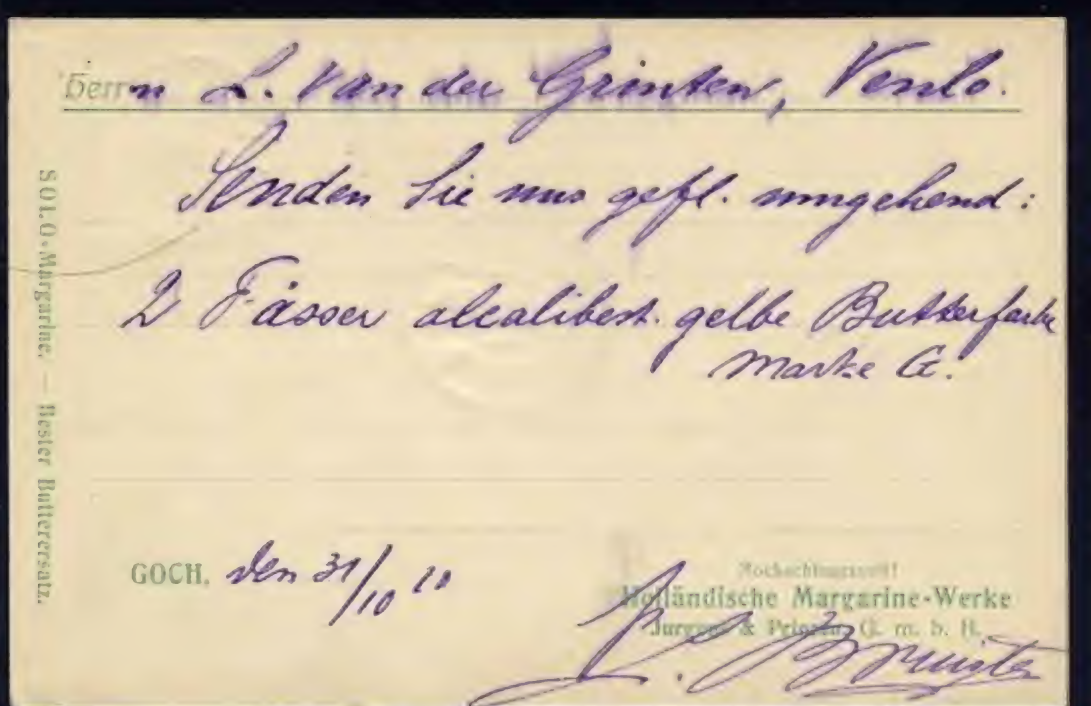 Herrn L. van der Grinten, Venlo.
Senden Sie uns gefl. umgehend:
2 Fässer alcalibest. gelbe Butterfarbe
Marke G.
SOLO-Margarine. — Bester Butterersatz.
GOCH, den 31/10 10
Hochachtungsvoll
Holländische Margarine-Werke
Jurgens & Prinzen, G. m. b. H.